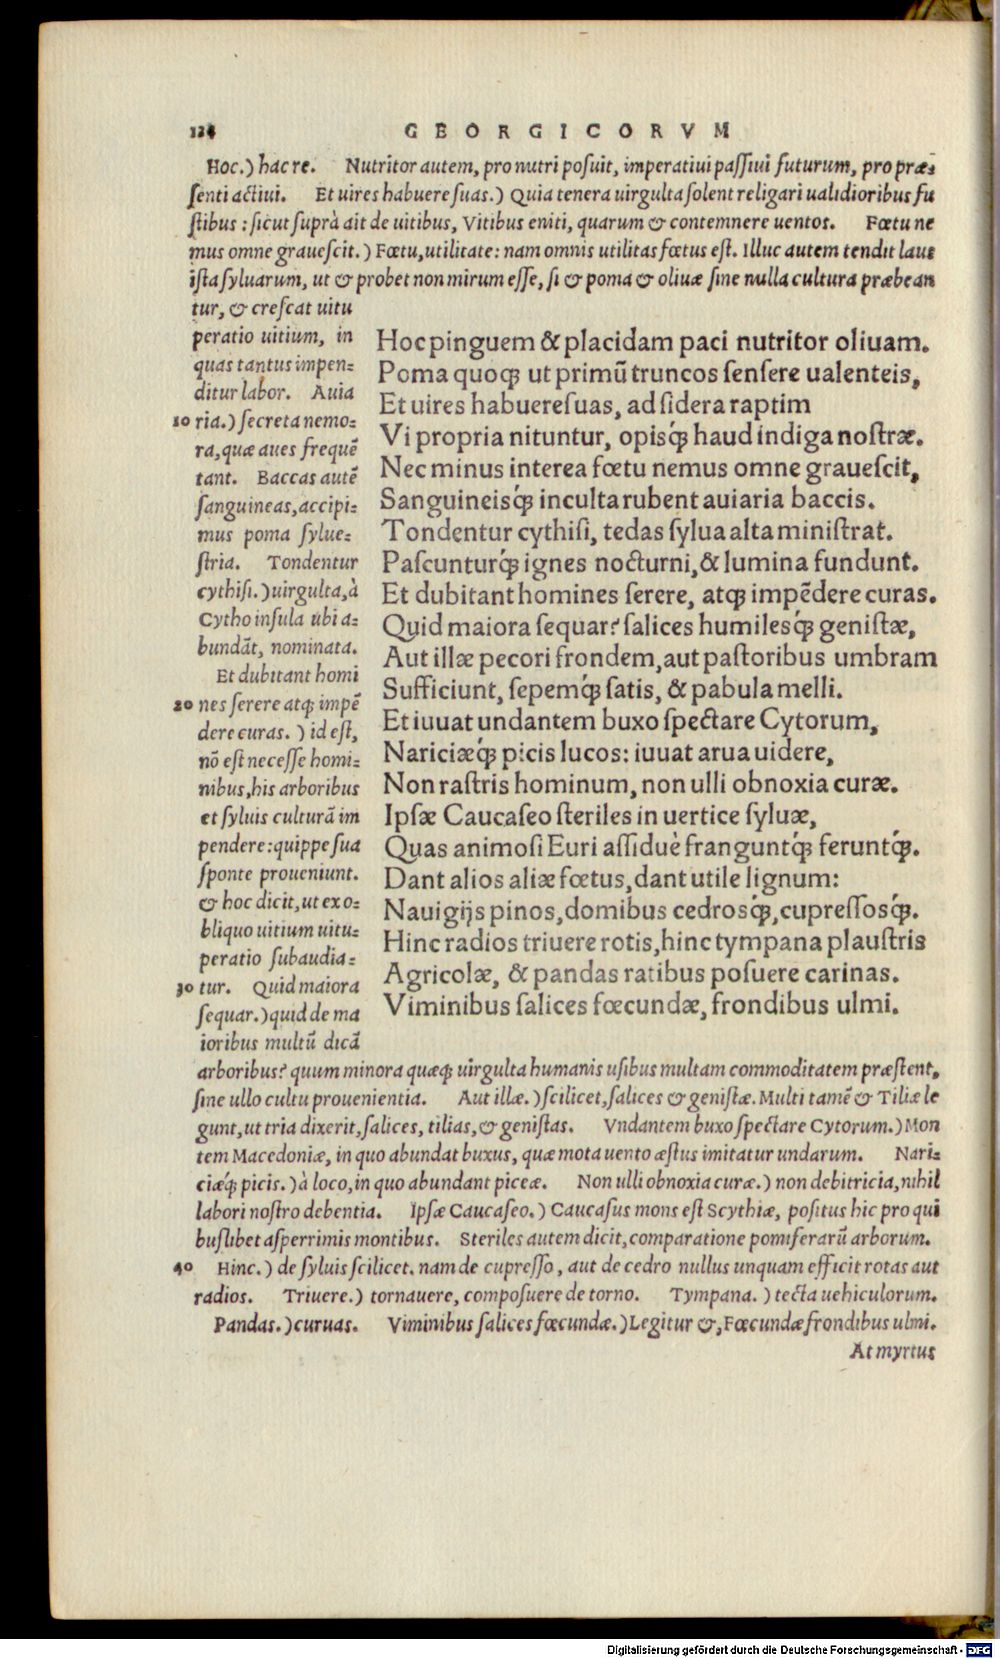 124 GEORGICORVM
Hoc.) hac re. Nutritor autem, pro nutri posuit, imperatiui passiui futurum, pro præ-
senti actiui. Et uires habuere suas.) Quia tenera uirgulta solent religari ualidioribus fu
stibus : sicut suprà ait de uitibus, Vitibus eniti, quarum & contemnere uentos. Fœtu ne
mus omne grauescit.) Fœtu, utilitate: nam omnis utilitas fœtus est. Illuc autem tendit laus
ista syluarum, ut & probet non mirum esse, si & poma & oliuæ sine nulla cultura præbean
tur, & crescat uitu
peratio uitium, in
quas tantus impen-
ditur labor. Auia
10 ria.) secreta nemo-
ra, quæ aues frequẽ
tant. Baccas autẽ
sanguineas, accipi-
mus poma sylue-
stria. Tondentur
cythisi.) uirgulta, à
Cytho insula ubi a-
bundãt, nominata.
Et dubitant homi
20 nes serere atq; impẽ
dere curas.) id est,
nõ est necesse homi-
nibus, his arboribus
et syluis culturã im
pendere: quippe sua
sponte proueniunt.
& hoc dicit, ut ex o-
bliquo uitium uitu-
peratio subaudia-
30 tur. Quid maiora
sequar.) quid de ma
ioribus multũ dicã
Hoc pinguem & placidam paci nutritor oliuam.
Poma quoq; ut primũ truncos sensere ualenteis,
Et uires habuere suas, ad sidera raptim
Vi propria nituntur, opisq́; haud indiga nostræ.
Nec minus interea fœtu nemus omne grauescit,
Sanguineisq́; inculta rubent auiaria baccis.
Tondentur cythisi, tedas sylua alta ministrat.
Pascunturq́; ignes nocturni, & lumina fundunt.
Et dubitant homines serere, atq; impẽdere curas.
Quid maiora sequar? salices humilesq́; genistæ,
Aut illæ pecori frondem, aut pastoribus umbram
Sufficiunt, sepemq́; satis, & pabula melli.
Et iuuat undantem buxo spectare Cytorum,
Nariciæq́; picis lucos: iuuat arua uidere,
Non rastris hominum, non ulli obnoxia curæ.
Ipsæ Caucaseo steriles in uertice syluæ,
Quas animosi Euri assiduè franguntq́; feruntq́;.
Dant alios aliæ fœtus, dant utile lignum:
Nauigijs pinos, domibus cedrosq́;, cupressosq́;.
Hinc radios triuere rotis, hinc tympana plaustris
Agricolæ, & pandas ratibus posuere carinas.
Viminibus salices fœcundæ, frondibus ulmi.
arboribus? quum minora quæq; uirgulta humanis usibus multam commoditatem præstent,
sine ullo cultu prouenientia. Aut illæ.) scilicet, salices & genistæ. Multi tamẽ & Tiliæ le
gunt, ut tria dixerit, salices, tilias, & genistas. Vndantem buxo spectare Cytorum.) Mon
tem Macedoniæ, in quo abundat buxus, quæ mota uento æstus imitatur undarum. Nari-
ciæq́; picis.) à loco, in quo abundant piceæ. Non ulli obnoxia curæ.) non debitricia, nihil
labori nostro debentia. Ipsæ Caucaseo.) Caucasus mons est Scythiæ, positus hic pro qui
buslibet asperrimis montibus. Steriles autem dicit, comparatione pomiferarũ arborum.
40 Hinc.) de syluis scilicet. nam de cupresso, aut de cedro nullus unquam efficit rotas aut
radios. Triuere.) tornauere, composuere de torno. Tympana.) tecta uehiculorum.
Pandas.) curuas. Viminibus salices fœcundæ.) Legitur &, Fœcundæ frondibus ulmi.
At myrtus
Digitalisierung gefördert durch die Deutsche Forschungsgemeinschaft - DFG